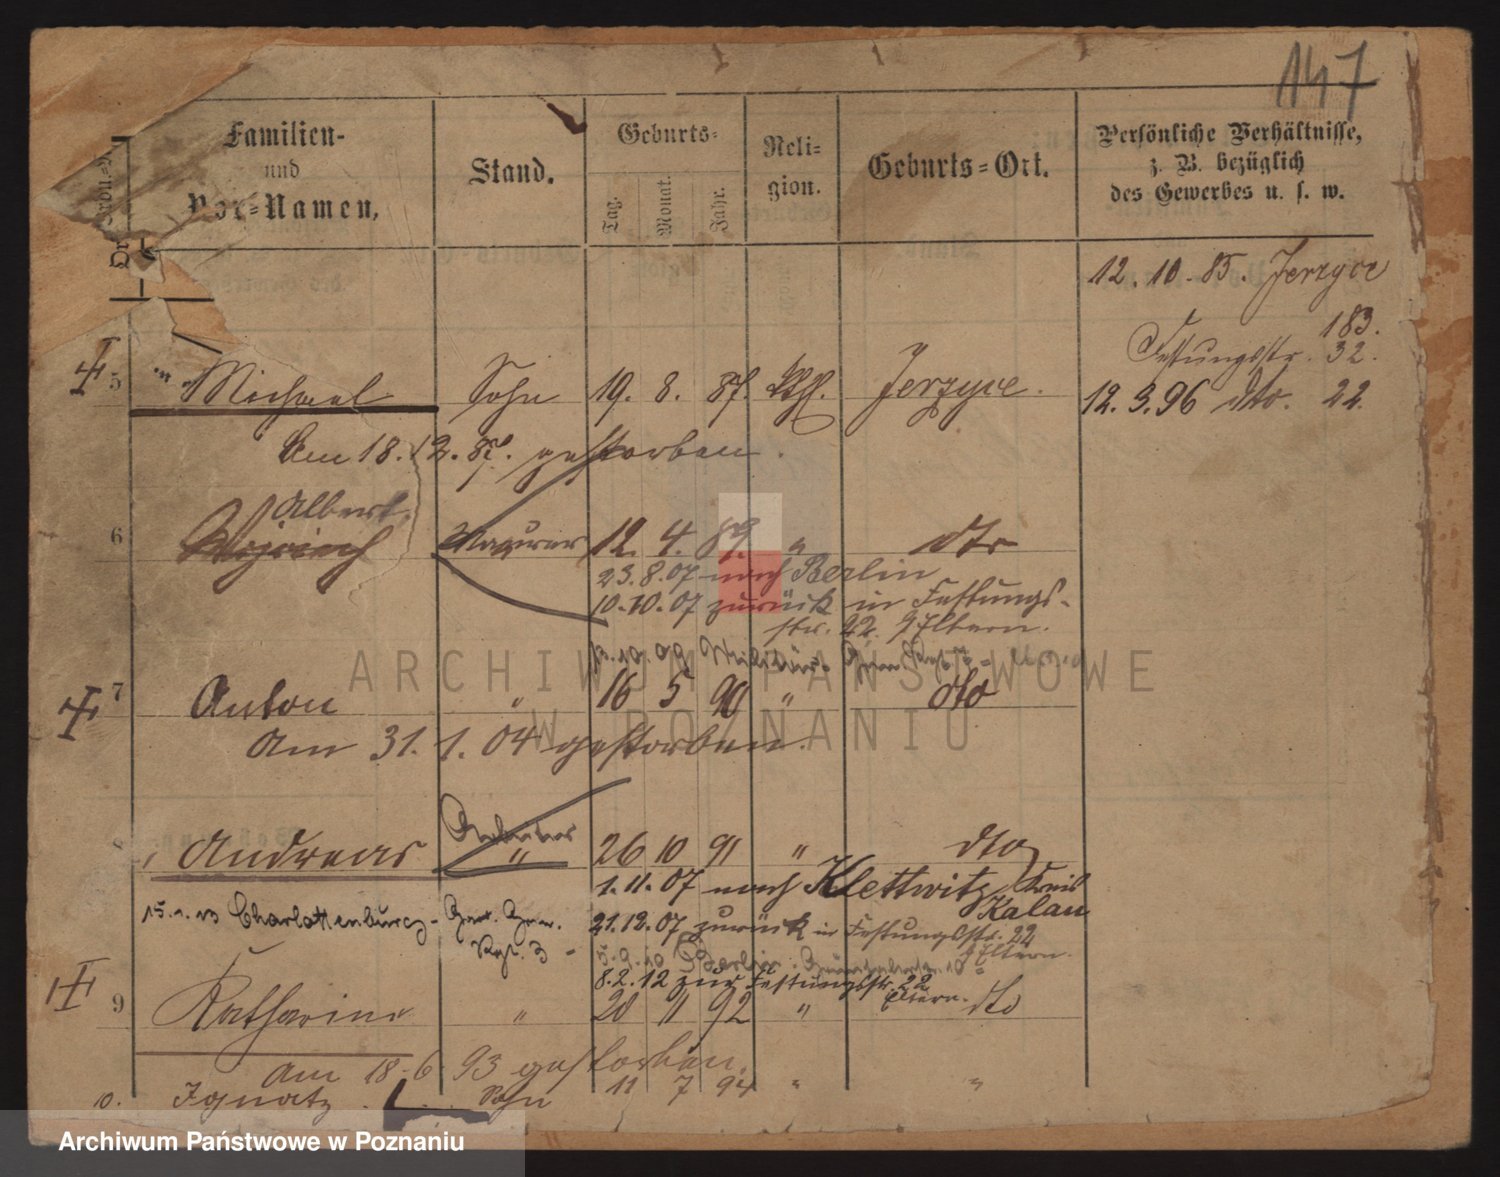 147
Familien-
und
Vor-Namen,
Stand.
Geburts-
Tag. Monat. Jahr.
Reli-
gion.
Geburts-Ort.
Persönliche Verhältnisse,
z. B. bezüglich
des Gewerbes u. s. w.
12. 10. 85. Jerzyce
183.
Festungsstr. 32.
5 Michael Sohn 19. 8. 87. Kthl. Jerzyce.
12. 3. 96 dto. 22.
Am 18. 12. 87. gestorben.
Albert
6 Wojciech Maurer 12. 4. 89. " dto
23. 8. 07 nach Berlin
10. 10. 07 zurück in Festungs-
str. 22. Eltern.
Militär
7 Anton " 16 5 90 " dto
Am 31. 1. 04 gestorben.
8 Andreas Arbeiter " 26 10 91 " dto
1. 11. 07 nach Klettwitz, Kreis
Kalau
15. 1. 13 Charlottenburg- Gren.
Rgt. 3-
21. 12. 07 zurück in Festungsstr. 22
Eltern.
5. 9. 10 Berlin
8. 2. 12 zur Festungsstr. 22
Eltern.
9 Katharina " 20 11 92 " dto
Am 18. 6. 93 gestorben.
10. Ignatz Sohn 11 7 94 " "
ARCHIWUM PAŃSTWOWE
W POZNANIU
Archiwum Państwowe w Poznaniu